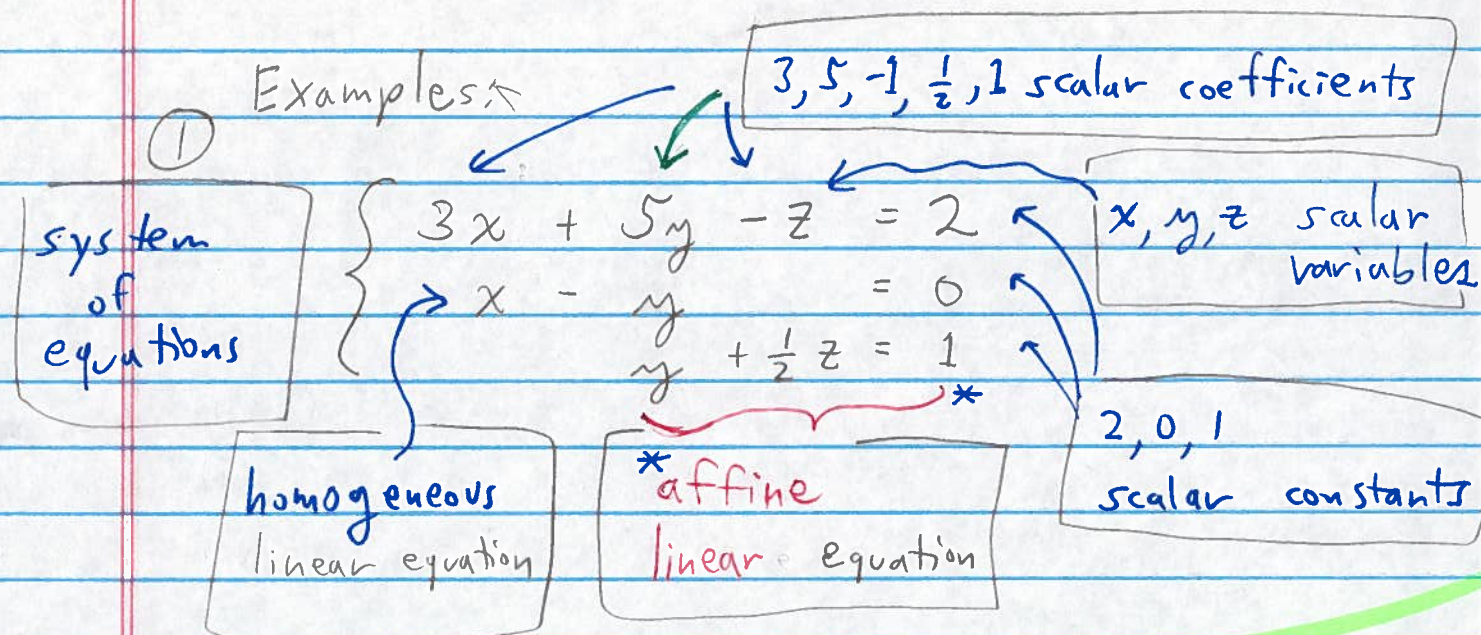 Examples:
3, 5, -1, 1/2, 1 scalar coefficients
①
system
of
equations
3x + 5y - z = 2
x - y = 0
y + 1/2 z = 1
*
x, y, z scalar
variables
2, 0, 1
scalar constants
homogeneous
linear equation
* affine
linear equation